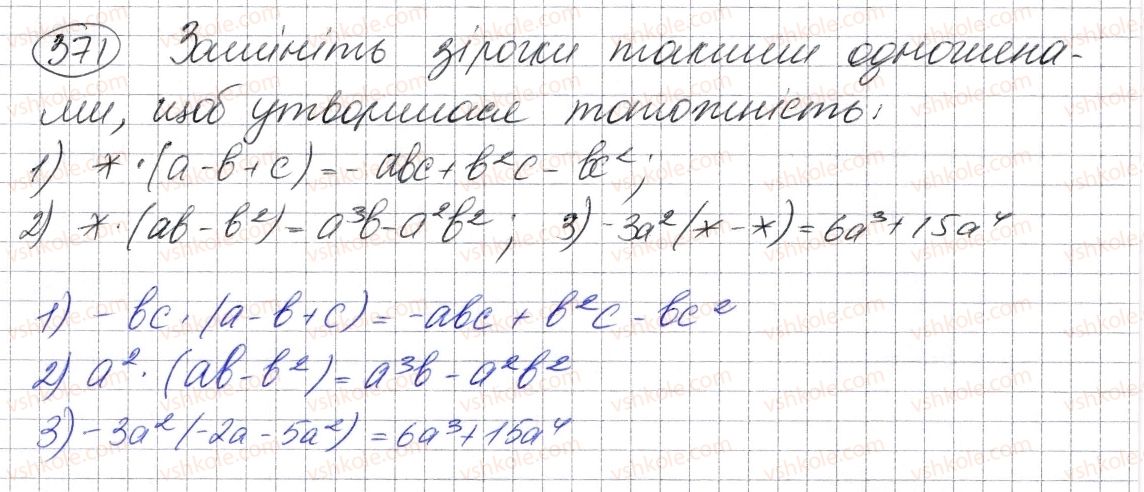 371 Замініть зірочки такими одночлена-
ми, щоб утворилася тотожність:
1) * · (a - b + c) = - abc + b²c - bc²;
2) * · (ab - b²) = a³b - a²b²; 3) -3a² (* - *) = 6a³ + 15a⁴
1) - bc · (a - b + c) = -abc + b²c - bc²
2) a² · (ab - b²) = a³b - a²b²
3) -3a² (-2a - 5a²) = 6a³ + 15a⁴